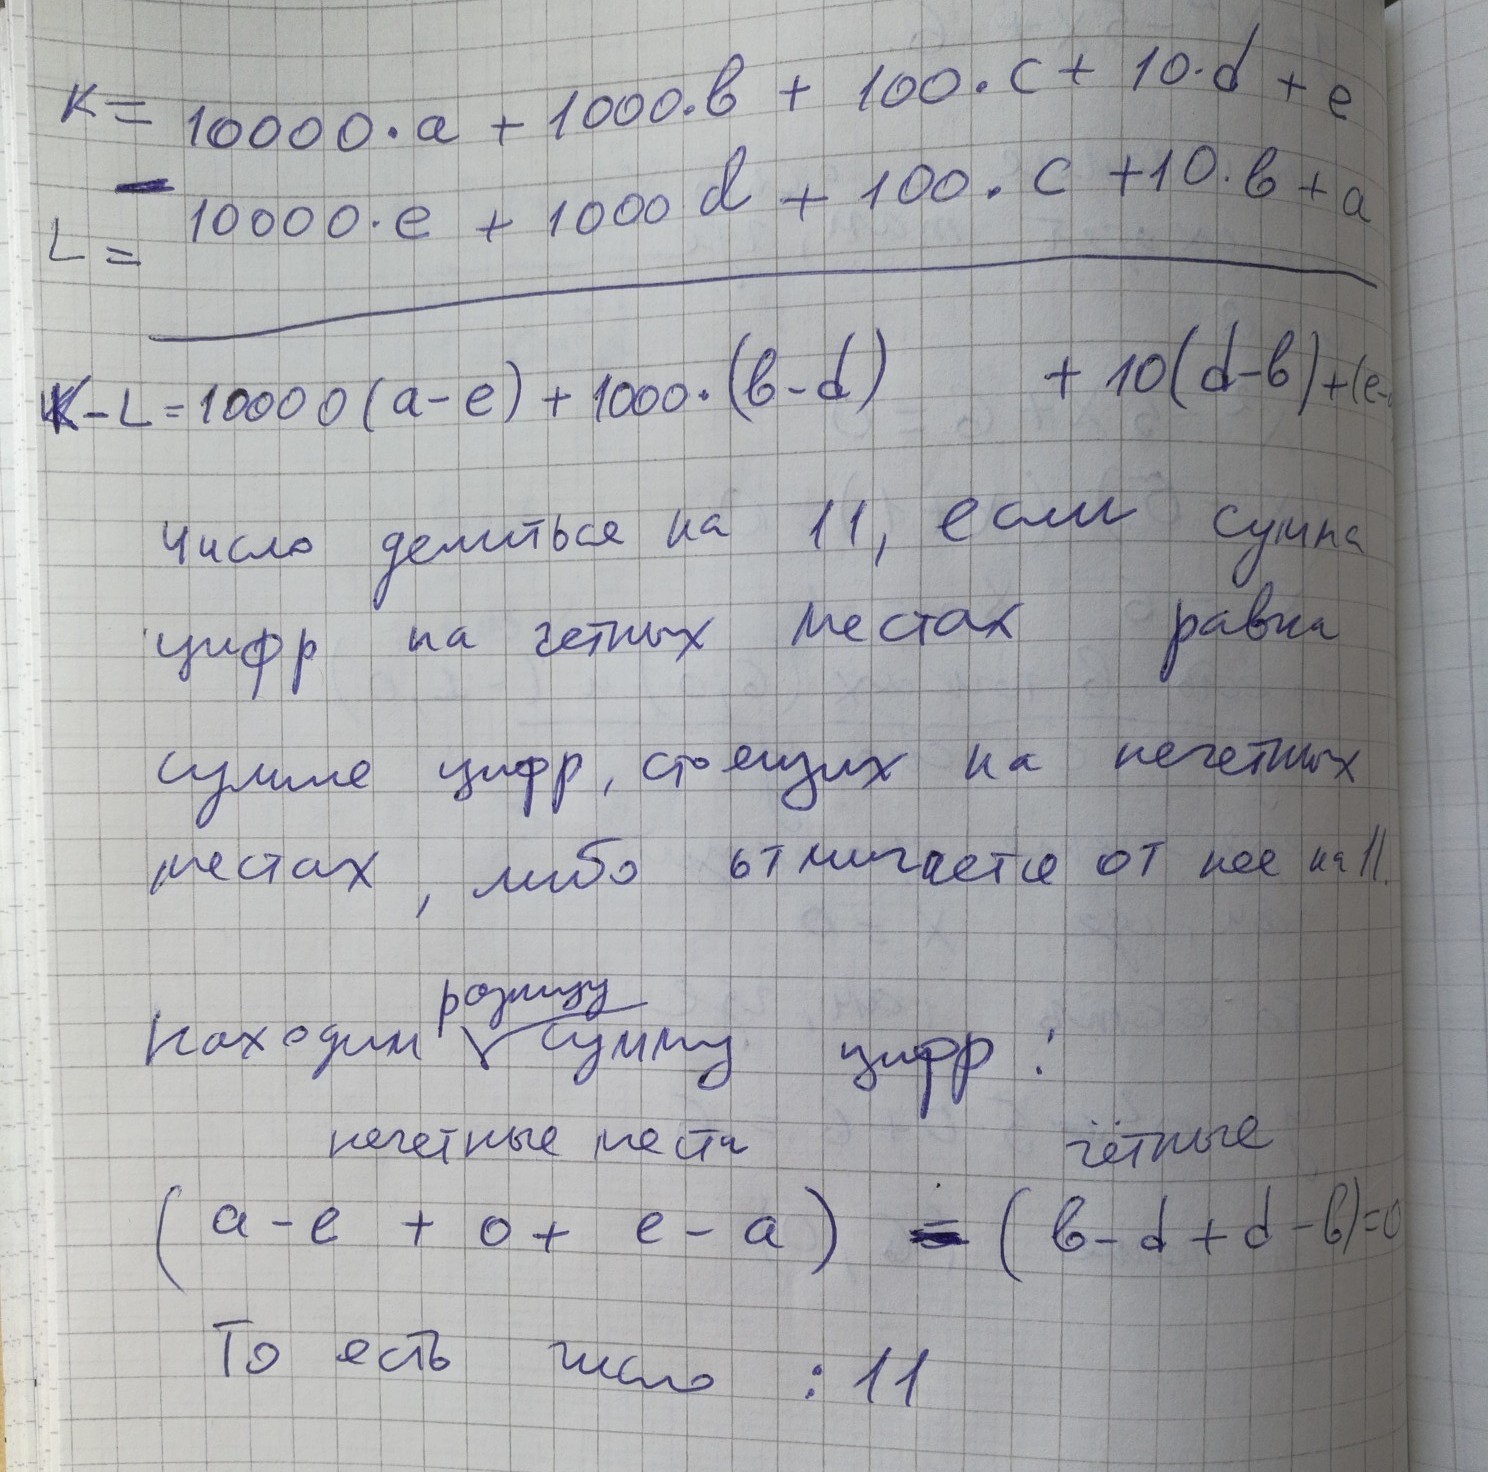 K = 10000·a + 1000·в + 100·c + 10·d + e
−
L = 10000·e + 1000 d + 100·c + 10·в + a
K-L = 10000(a-e) + 1000·(в-d) + 10(d-в) + (e-
число делиться на 11, если сумма
цифр на четных местах равна
сумме цифр, стоящих на нечетных
местах, либо отличается от нее на 11.
разницу
Находим √ сумму цифр :
нечетные места чётные
(a-e + 0 + e-a) − (в-d+d-в)=0
То есть число : 11